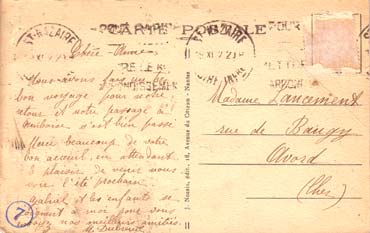 CARTE POSTALE
ST-NAZAIRE
Chère Amie
Nous avons fait un bon
voyage pour notre
retour et notre passage à
s'est bien passé
Merci beaucoup de votre
bon accueil, en attendant
le plaisir de venir nous
voir l'été prochain.
Gabriel et les enfants se
joignent à moi pour vous
nos meilleures amitiés.
M. Dubreuil
7
J. Nozais, édit., 18, Avenue du Côteau - Nantes
Madame Lancement
rue de Baugy
Avord
(Cher)